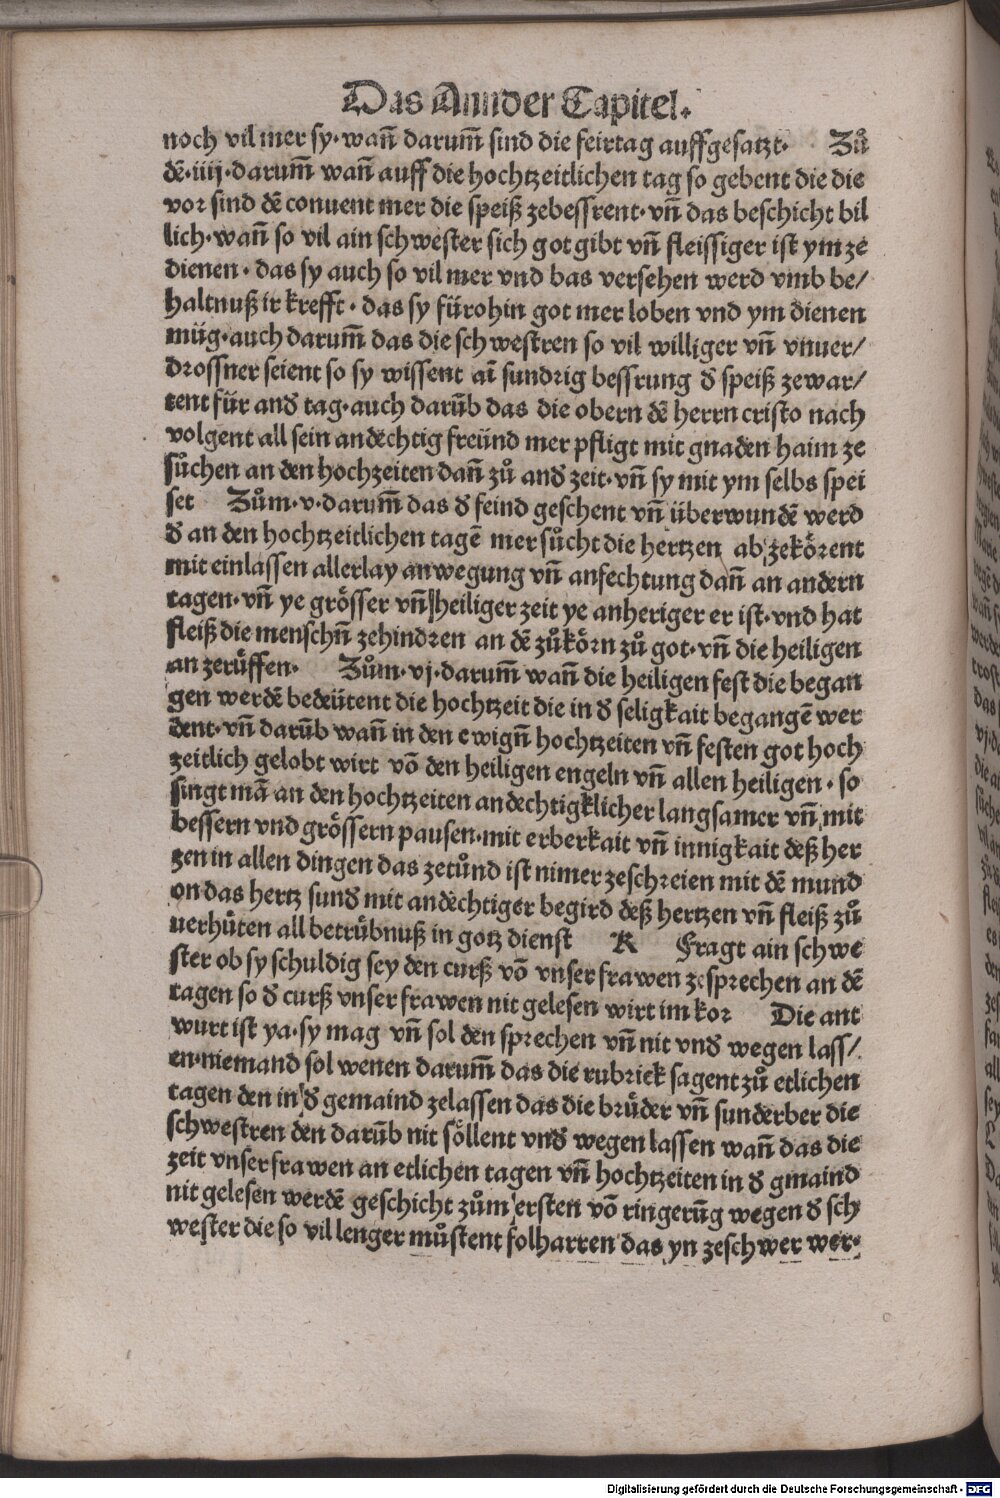 Das Annder Capitel.
noch vil mer sy· wañ darum̃ sind die feirtag auffgesatzt· Zů
dẽ·iiij·darum̃ wañ auff die hochtzeitlichen tag so gebent die die
vor sind dẽ conuent mer die speiß zebessrent· vñ das beschicht bil
lich·wañ so vil ain schwester sich got gibt vñ fleissiger ist ym ze
dienen · das sy auch so vil mer vnd bas versehen werd vmb be/
haltnuß ir krefft · das sy fürohin got mer loben vnd ym dienen
müg·auch darum̃ das die schwestren so vil williger vñ vnuer/
drossner seient so sy wissent aĩ sundrig bessrung đ speiß zewar/
tent für anđ tag·auch darũb das die obern dẽ herrn cristo nach
volgent all sein andechtig freünd mer pfligt mit gnaden haim ze
sůchen an den hochzeiten dañ zů anđ zeit· vñ sy mit ym selbs spei
set Zům·v·darum̃ das đ feind geschent vñ überwundẽ werd
đ an den hochtzeitlichen tagẽ mer sůcht die hertzen ab zekörent
mit einlassen allerlay anwegung vñ anfechtung dañ an andern
tagen· vñ ye grösser vñ heiliger zeit ye anheriger er ist·vnd hat
fleiß die menschñ zehindren an dẽ zůkörn zů got·vñ die heiligen
an zerüffen· Zům·vj·darum̃ wañ die heiligen fest die began
gen werdẽ bedeütent die hochtzeit die in đ seligkait begangẽ wer
dent·vñ darũb wañ in den ewigñ hochtzeiten vñ festen got hoch
zeitlich gelobt wirt võ den heiligen engeln vñ allen heiligen · so
singt mã an den hochtzeiten andechtigklicher langsamer vñ mit
bessern vnd grössern pausen·mit erberkait vñ innigkait deß her
zen in allen dingen das zetůnd ist nimer zeschreien mit dẽ mund
on das hertz sunđ mit andechtiger begird deß hertzen vñ fleiß zů
uerhüten all betrübnuß in gotz dienst K Fragt ain schwe
ster ob sy schuldig sey den curß võ vnser frawen zesprechen an dẽ
tagen so đ curß vnser frawen nit gelesen wirt im kor Die ant
wurt ist ya·sy mag vñ sol den sprechen vñ nit vnđ wegen lass/
en·niemand sol wenen darum̃ das die rubrick sagent zů etlichen
tagen den in đ gemaind zelassen das die brüder vñ sunderber die
schwestren den darũb nit söllent vnđ wegen lassen wañ das die
zeit vnser frawen an etlichen tagen vñ hochtzeiten in đ gmaind
nit gelesen werdẽ geschicht zům ersten võ ringerũg wegen đ sch
wester die so vil lenger můstent folharren das yn zeschwer wer·
Digitalisierung gefördert durch die Deutsche Forschungsgemeinschaft · DFG